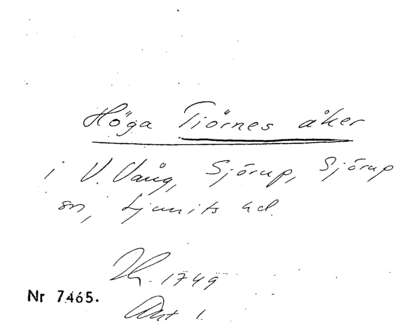 Höga Tiörnes åker
i V. Vång, Sjörup, Sjörup
sn, Ljunits hd.
1749
Nr 7465.
Akt 1.